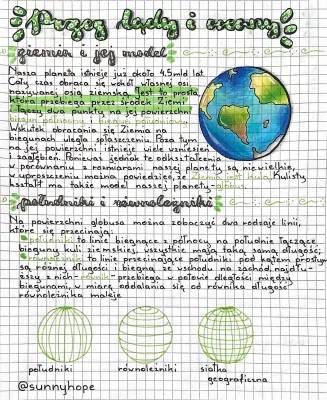 Przez lądy i oceany
ziemia i jej model
Nasza planeta istnieje już około 4.5mld lat
Cały czas obraca się wokół własnej osi,
nazywanej osią ziemską. Jest to prosta,
która przebiega przez środek Ziemi
i łączy dwa punkty na jej powierzchni
biegun północny i biegun południowy
Wskutek obracania się Ziemia na
biegunach uległa spłaszczeniu. Poza tym,
na jej powierzchni istnieje wiele wzniesień
i zagłębień. Ponieważ jednak te odkształcenia
w porównaniu z rozmiarami naszej planety są niewielkie,
w uproszczeniu można powiedzieć, że Ziemia. Kulisty
kształt ma także model naszej planety-globus
południki i równoleżniki
Na powierzchni globusa można zobaczyć dwa rodzaje linii,
które się przecinają:
południki to linie biegnące z północy na południe łączące
bieguny kuli ziemskiej, wszystkie mają taką samą długość;
równoleżniki to linie przecinające południki pod kątem prostym
są różnej długości i biegną ze wschodu na zachód, najdłu-
ższy z nich-równik-przebiega w połowie długości między
biegunami, w miarę oddalania się od równika długość
równoleżnika maleje
południki równoleżniki siatka
geograficzna
@sunnyhope